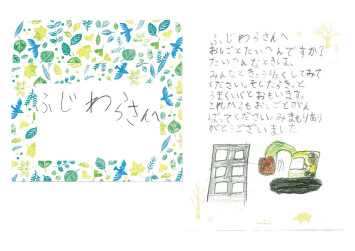 ふじわらさんへ
ふじわらさんへ
おしごとたいへんですか?
たいへんなときは、
みんなときょうりょくしてみて
ください。そしたらきっと
うまくいくとおもいます。
これからもおしごとがん
ばってください。みまもりあり
がとうございました